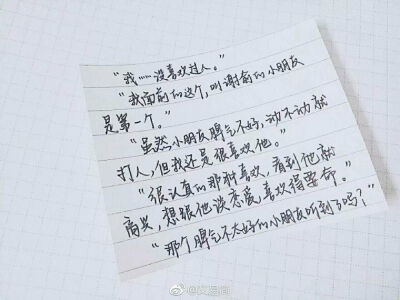 “我……没喜欢过人。”
“我面前的这个,叫谢俞的小朋友
是第一个。”
“虽然小朋友脾气不好,动不动就
打人,但我还是很喜欢他。”
“很认真的那种喜欢,看到他就
高兴,想跟他谈恋爱,喜欢得要命。”
“那个脾气不太好的小朋友听到了吗?”